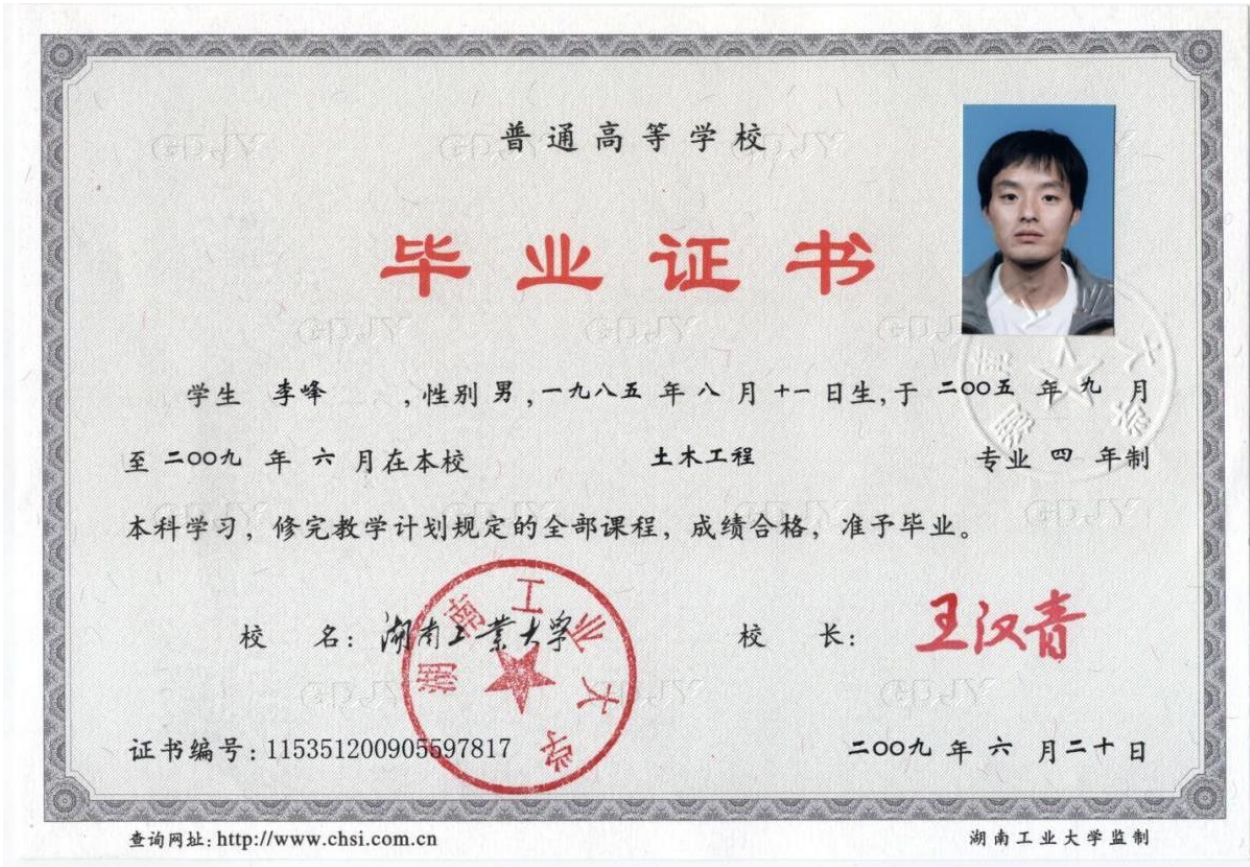 普通高等学校
毕业证书
学生 李峰 ,性别 男 ,一九八五 年 八 月 十一 日生,于 二〇〇五 年 九 月
至 二〇〇九 年 六 月在本校 土木工程 专业 四 年制
本科学习，修完教学计划规定的全部课程，成绩合格，准予毕业。
校 名：湖南工業大学 校 长：王汉青
湖南工业大学
证书编号：115351200905597817 二〇〇九 年 六 月二十日
查询网址：http://www.chsi.com.cn 湖南工业大学监制